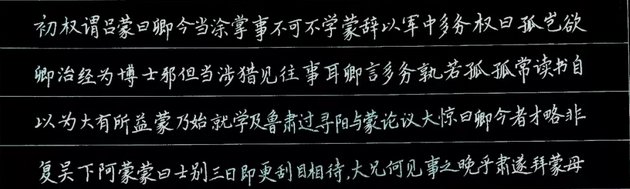 初权谓吕蒙曰卿今当涂掌事不可不学蒙辞以军中多务权曰孤岂欲
卿治经为博士邪但当涉猎见往事耳卿言多务孰若孤孤常读书自
以为大有所益蒙乃始就学及鲁肃过寻阳与蒙论议大惊曰卿今者才略非
复吴下阿蒙蒙曰士别三日即更刮目相待,大兄何见事之晚乎肃遂拜蒙母